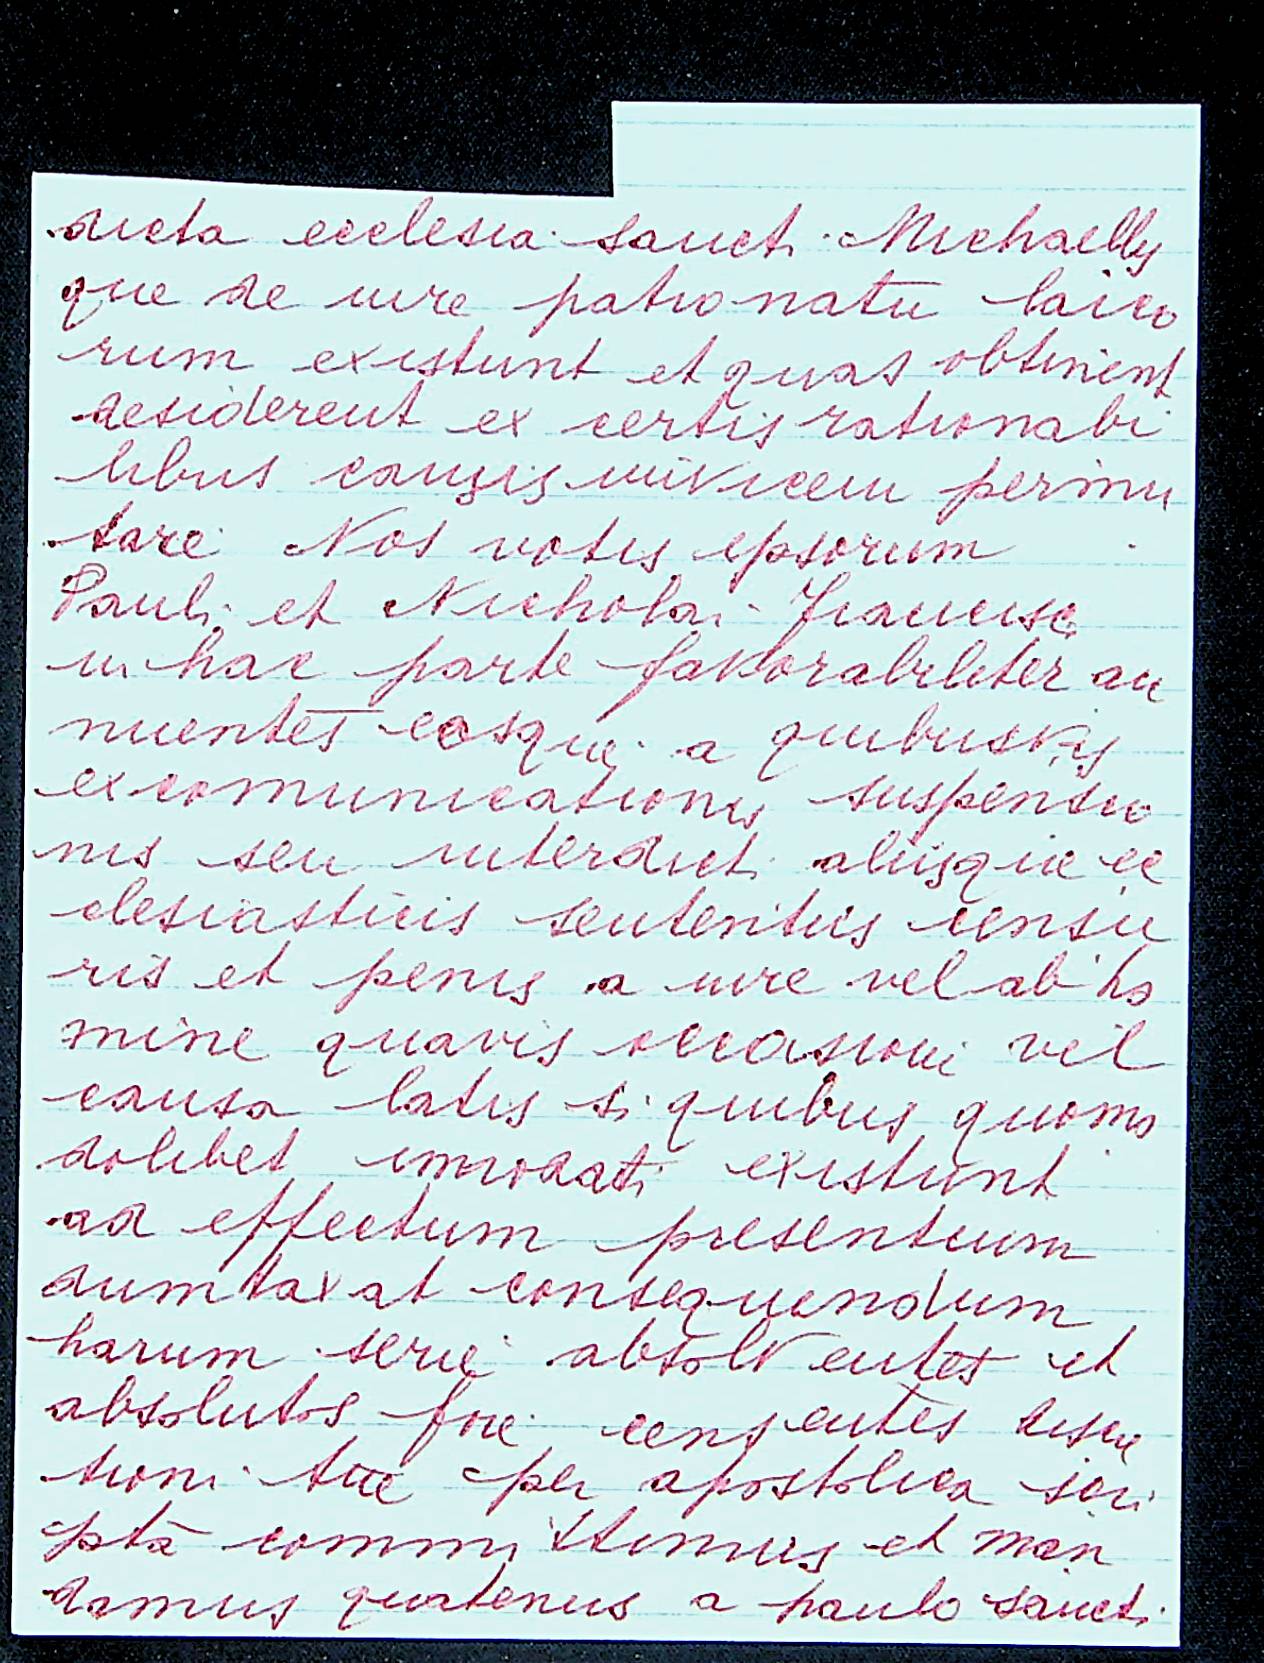 dicta ecclesia sancti Michaelis
que de iure patronatu laico
rum existunt et quas obtinent
desiderent ex certis rationabi
libus causis invicem permu
tare Nos votis ipsorum
Pauli et Nicholai Francisci
in hac parte favorabiliter an
nuentes eosque a quibusvis
excomunicationis suspensio
nis seu interdicti aliisque ec
clesiasticis sententiis censu
ris et penis a iure vel ab ho
mine quavis occasione vel
causa latis si quibus quomo
dolibet innodati existunt
ad effectum presentium
dumtaxat consequendum
harum serie absolventes et
absolutos fore censentes discre
tioni tue per apostolica scri
pta committimus et man
damus quatenus a paulo sancti